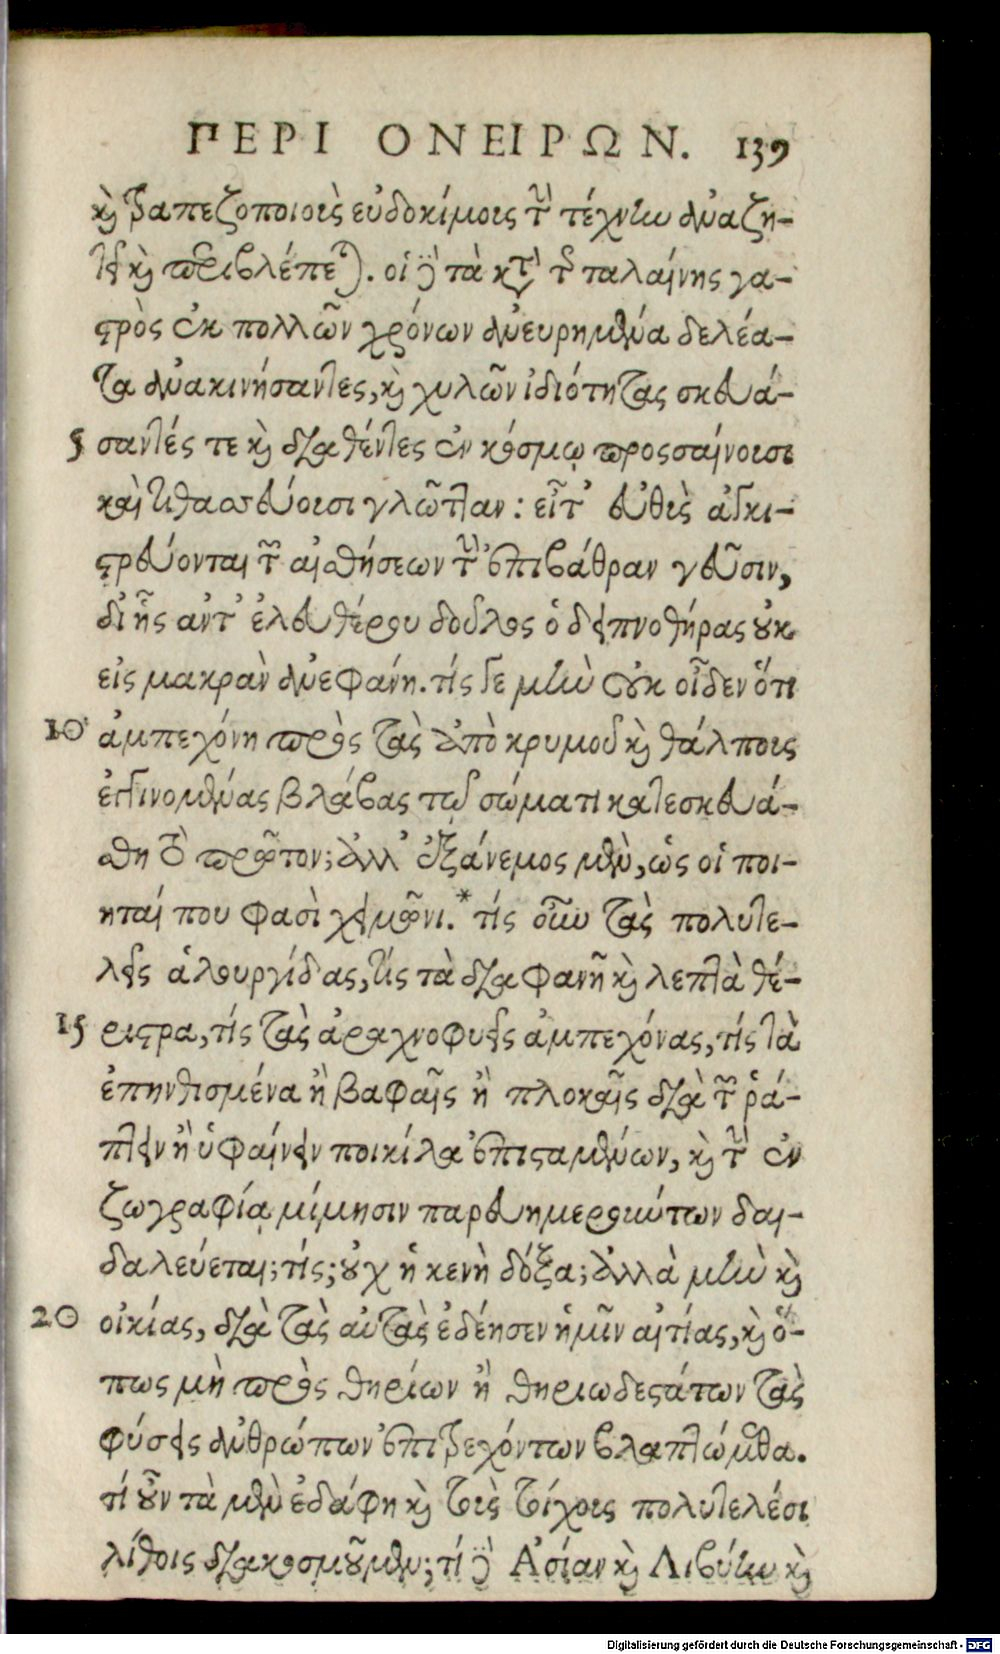 ΠΕΡΙ ΟΝΕΙΡΩΝ. 139
καὶ τραπεζοποιοὺς εὐδοκίμους τὴν τέχνην ἀναζη-
τεῖ καὶ περιβλέπεται. οἱ δὲ τὰ κατὰ τῆς ταλαίνης γα-
στρὸς ἐκ πολλῶν χρόνων ἀνευρημένα δελέα-
τα ἀνακινήσαντες, καὶ χυλῶν ἰδιότητας σκευά-
5 σαντές τε καὶ διαθέντες ἐν κόσμῳ προςσαίνουσι
καὶ τιθασσεύουσι γλῶτταν: εἶτ' εὐθὺς ἀγκι-
στρεύονται τῶν αἰσθήσεων τὴν ἐπιβάθραν γεῦσιν,
δι' ἧς ἀντ' ἐλευθέρου δοῦλος ὁ δειπνοθήρας οὐκ
εἰς μακρὰν ἀνεφάνη. τίς γε μὴν οὐκ οἶδεν ὅτι
10 ἀμπεχόνη πρὸς τὰς ἀπὸ κρυμοῦ καὶ θάλπους
ἐπιγινομένας βλάβας τῷ σώματι κατεσκευά-
σθη τὸ πρῶτον; ἀλλ' ἐξάνεμος μὲν, ὡς οἱ ποι-
ηταί που φασὶ χειμῶνι.* τίς οὖν τὰς πολυτε-
λεῖς ἁλουργίδας, τίς τὰ διαφανῆ καὶ λεπτὰ θέ-
15 ριστρα, τίς τὰς ἀραχνοφυεῖς ἀμπεχόνας, τίς τὰ
ἐπηνθισμένα ἢ βαφαῖς ἢ πλοκαῖς διὰ τῶν ῥά-
πτειν ἢ ὑφαίνειν ποικίλα ἐπισταμένων, καὶ τὴν ἐν
ζωγραφίᾳ μίμησιν παρευημερηκότων δαι-
δαλεύεται; τίς; οὐχ ἡ κενὴ δόξα; ἀλλὰ μὴν καὶ
20 οἰκίας, διὰ τὰς αὐτὰς ἐδέησεν ἡμῖν αἰτίας, καὶ ὅ-
πως μὴ πρὸς θηρίων ἢ θηριωδεστάτων τὰς
φύσεις ἀνθρώπων ἐπιτρεχόντων βλαπτώμεθα.
τί οὖν τὰ μὲν ἐδάφη καὶ τοὺς τοίχους πολυτελέσι
λίθοις διακοσμοῦμεν; τί δὲ Ἀσίαν καὶ Λιβύην καὶ
Digitalisierung gefördert durch die Deutsche Forschungsgemeinschaft - DFG